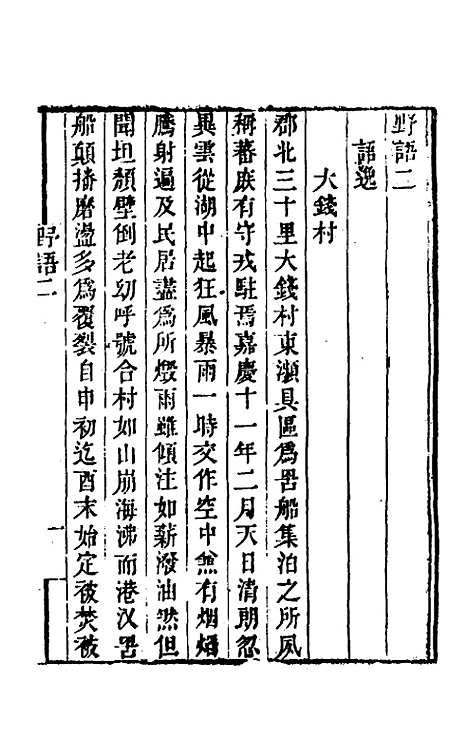 野語二
語逸
大錢村
郡北三十里大錢村東瀕具區爲罟船集泊之所夙
稱蕃庶有守戎駐焉嘉慶十一年二月天日清朗忽
異雲從湖中起狂風暴雨一時交作空中煞有烟熖
騰射遍及民居盡爲所燬雨雖傾注如薪潑油然但
聞坦頽壁倒老幼呼號合村如山崩海沸而港汊罟
船顛播磨盪多爲覆裂自申初迄酉末始定被焚被
野語二
一